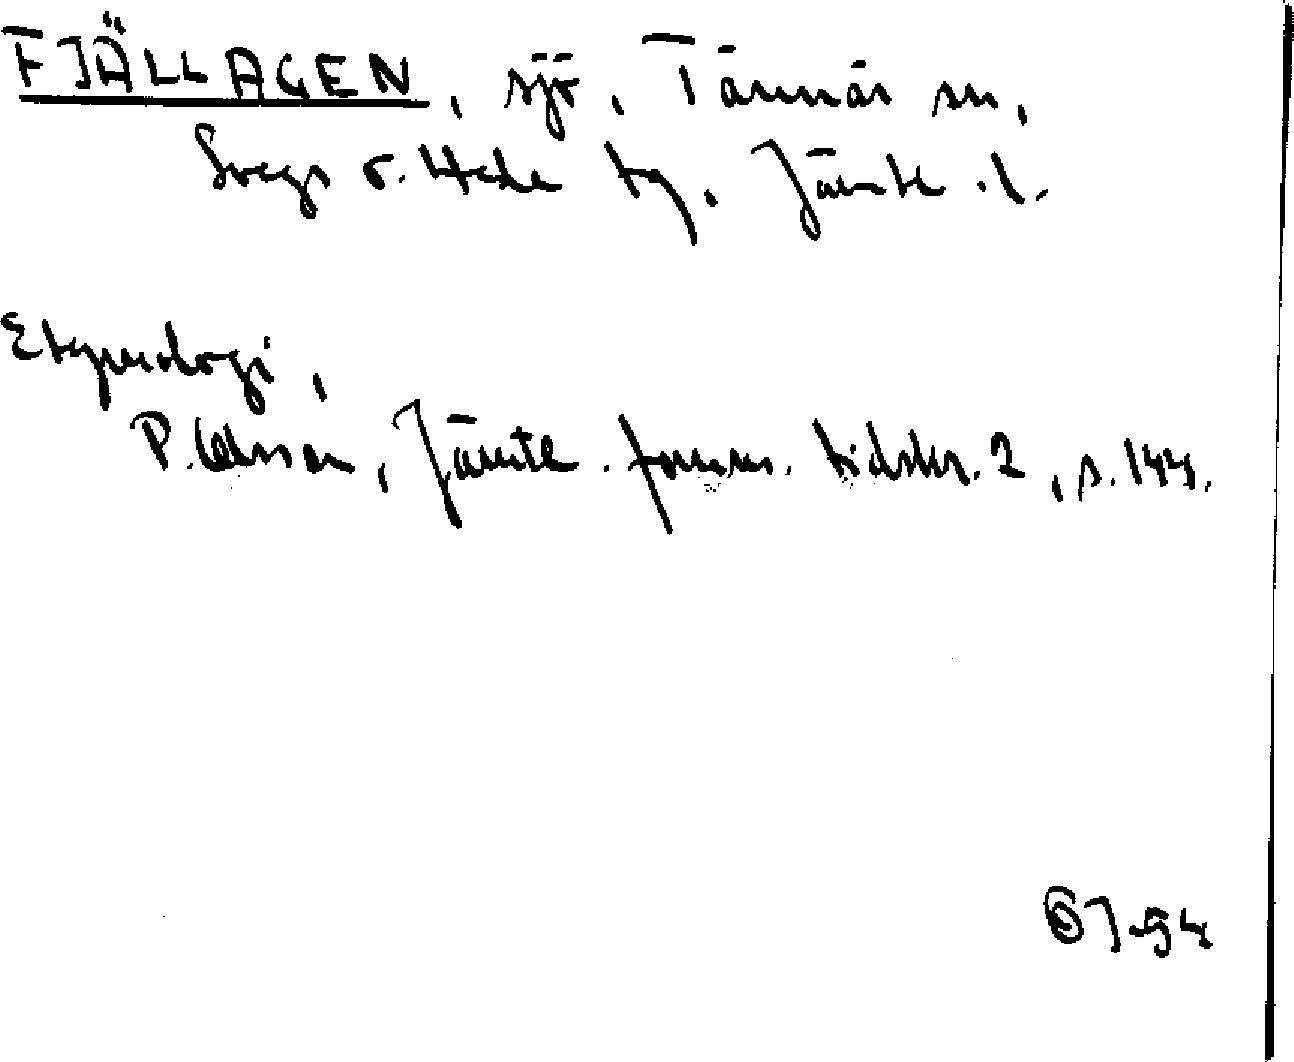 FJÄLLAGEN, sjö, Tännäs sn,
Svegs o. Hede tg. Jämtl. l.
Etymologi,
P. Olsson, Jämtl. fornm. tidskr. 2, s. 144.